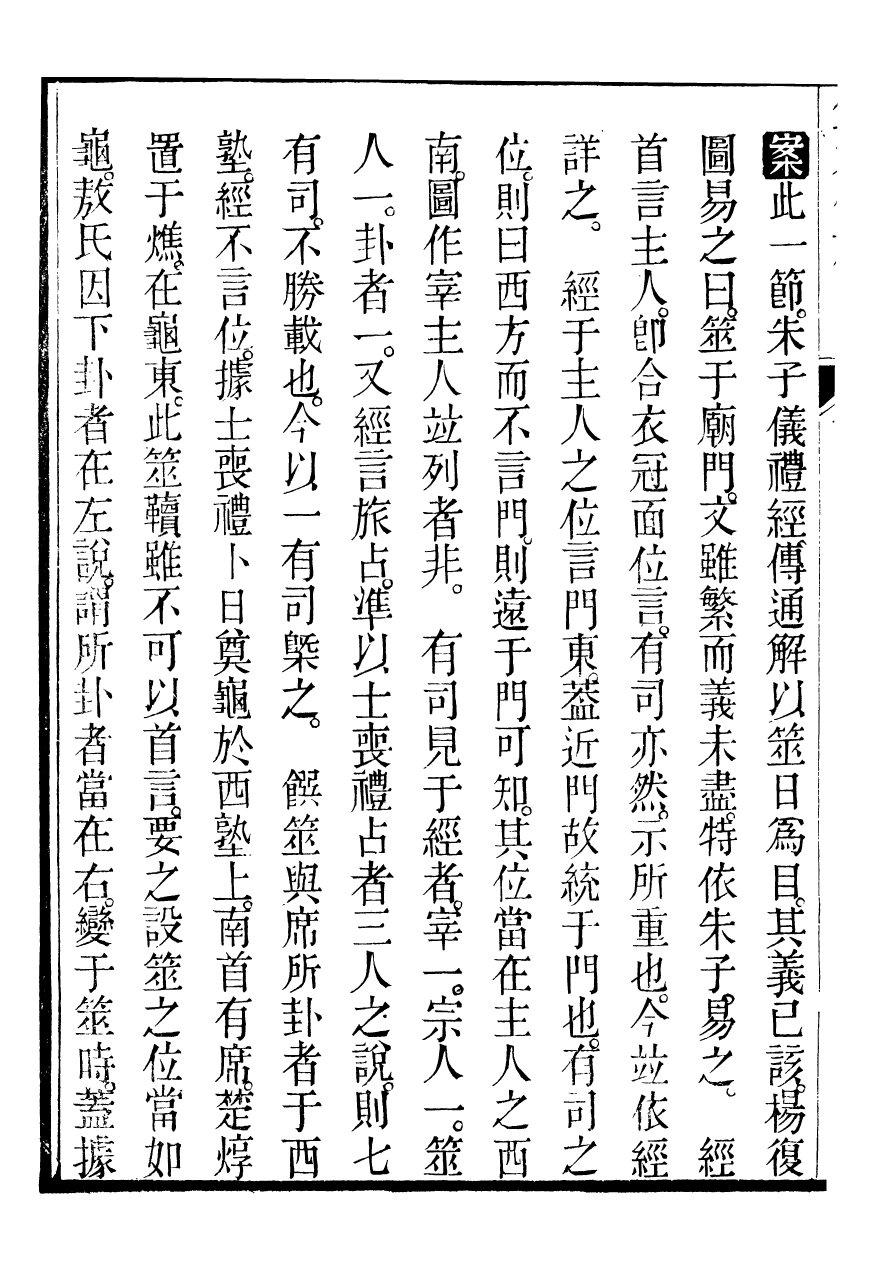 案此一節。朱子儀禮經傳通解以筮日爲目。其義已該。楊復
圖易之曰。筮于廟門。文雖繁而義未盡。特依朱子。易之。　經
首言主人。卽合衣冠面位言。有司亦然。示所重也。今並依經
詳之。　經于主人之位言門東。蓋近門故統于門也。有司之
位。則曰西方而不言門。則遠于門可知。其位當在主人之西
南。圖作宰主人並列者非。　有司見于經者。宰一。宗人一。筮
人一。卦者一。又經言旅占。準以士喪禮占者三人之說。則七
有司。不勝載也。今以一有司槩之。　饌筮與席所卦者于西
塾。經不言位。據士喪禮卜日奠龜於西塾上。南首有席。楚焞
置于燋。在龜東。此筮韇雖不可以首言。要之設筮之位當如
龜。敖氏因下卦者在左說。謂所卦者當在右。變于筮時。蓋據